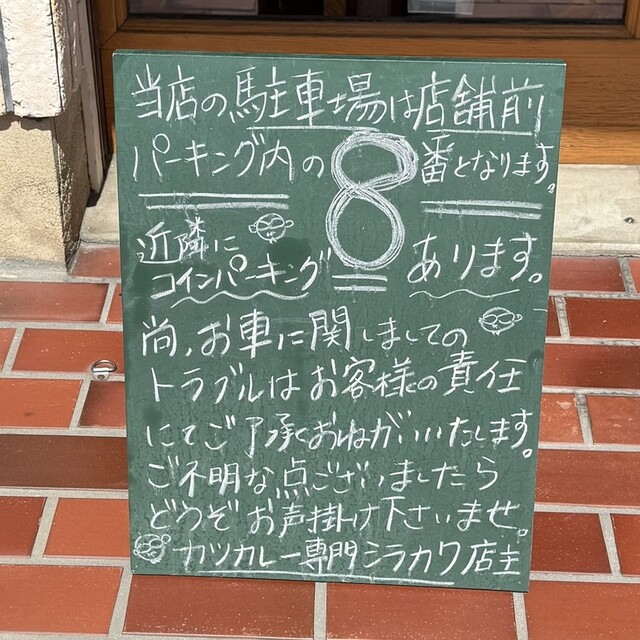 当店の駐車場は店舗前
パーキング内の8番となります。
近隣に
コインパーキングあります。
尚、お車に関しましての
トラブルはお客様の責任
にてご了承くおねがいいたします。
ご不明な点ございましたら
どうぞお声掛け下さいませ。
カツカレー専門シラカワ店主